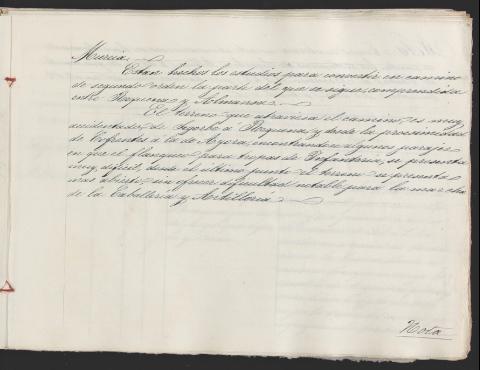 Murcia.
Estan hechos los estudios para convertir en camino
de segundo orden la parte del que se sigue, comprendida
entre Requena y Almansa.
El terreno que atraviesa el camino, es muy
accidentado de Segorbe a Requena, y desde la proximidad
de Cofrentes a la de Ayora, encontrandose algunos parajes
en que el flanqueo para tropas de Infanteria, se presenta
muy dificil; desde el ultimo punto el terreno se presenta
mas abierto, sin ofrecer dificultad notable para la marcha
de la Caballeria y Artilleria.
Nota